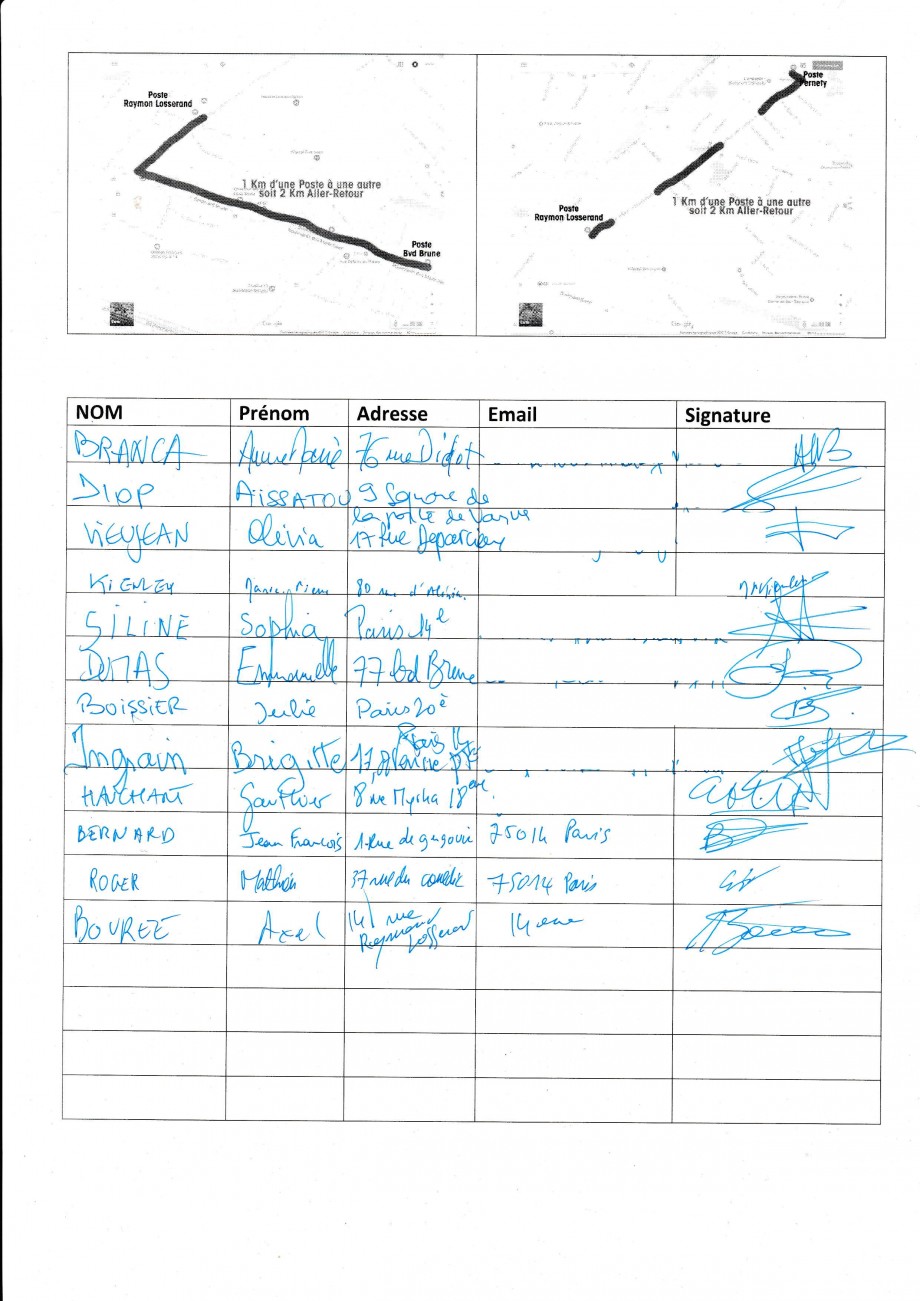 Poste
Raymon Losserand
1 Km d'une Poste à une autre
soit 2 Km Aller-Retour
Poste
Bvd Brune
Poste
Pernety
1 Km d'une Poste à une autre
soit 2 Km Aller-Retour
Poste
Raymon Losserand
NOM Prénom Adresse Email Signature
BRANCA Anne Marie 76 rue Didot AMB
DIOP AÏSSATOU 9 Square de
la porte de Vanve
VIEUJEAN Olivia 17 Rue Deparcieux
KIENLEY 80 rue d'Alésia
SILINE Sophia Paris 14e
DUMAS Emmanuelle 77 bd Brune
BOISSIER Julie Paris 20è
Ingrain Brigitte 17,
Gauthier 8 rue Myrha 18ème
BERNARD Jean François 1 Rue de 75014 Paris
ROGER 37 rue du 75014 Paris
BOUREE Axel 141 rue 14eme
Raymond
Losserand